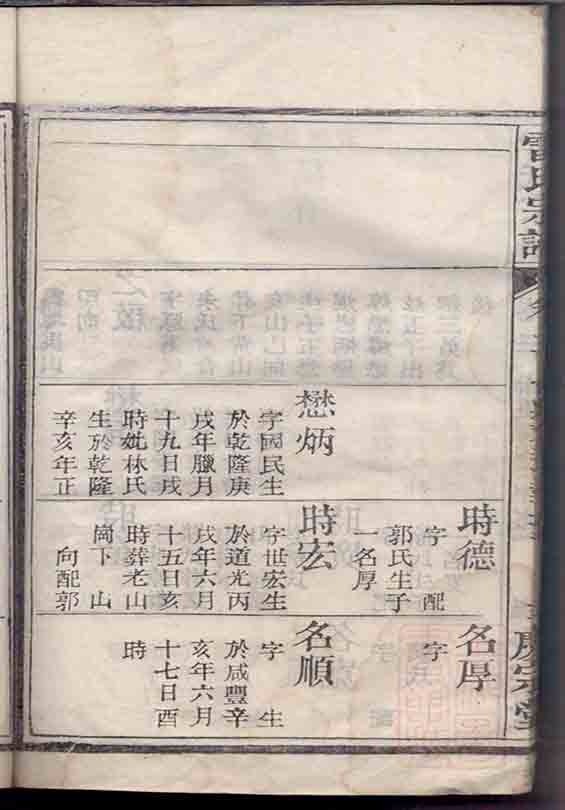 雷氏宗譜
卷
懋炳
字國民生
於乾隆庚
戌年臘月
十九日戌
時妣林氏
生於乾隆
辛亥年正
時德
字 配
郭氏生子
一名厚
時宏
字世宏生
於道光丙
戌年六月
十五日亥
時葬老山
崗下 山
向配郭
名厚
字
名順
字 生
於咸豐辛
亥年六月
十七日酉
時